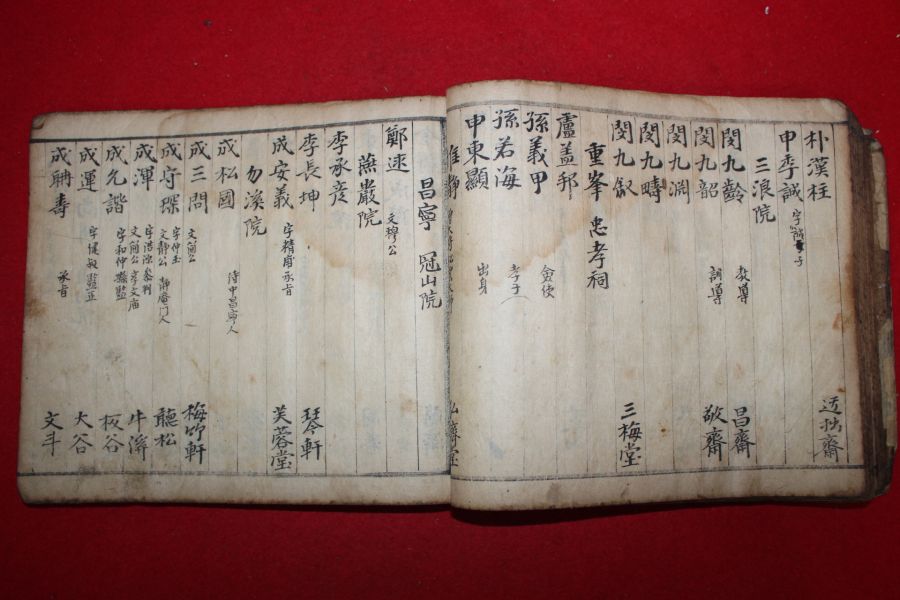 朴漢柱 迂拙齋
申季誠 字誠子
三浪院
閔九齡 教導 昌齋
閔九韶 訓導 敬齋
閔九淵
閔九疇
閔九叙 三梅堂
重峯 忠孝祠
盧盖邦
孫義甲 僉使
孫若海 孝子
申東顯 出身
昌寧 冠山院
鄭逑 文穆公
燕巖院
李承彦
李長坤 琴軒
成安義 字精甫 承旨 芙蓉堂
勿溪院
成松國 侍中昌寧人
成三問 文簡公 梅竹軒
成守琛 字仲玉 文靜公 靜庵門人 聽松
成渾 字浩源 參判 文簡公 享文庙 牛溪
成允諧 字和仲 縣監 板谷
成運 字健叔 監正 大谷
成聃壽 承旨 文斗